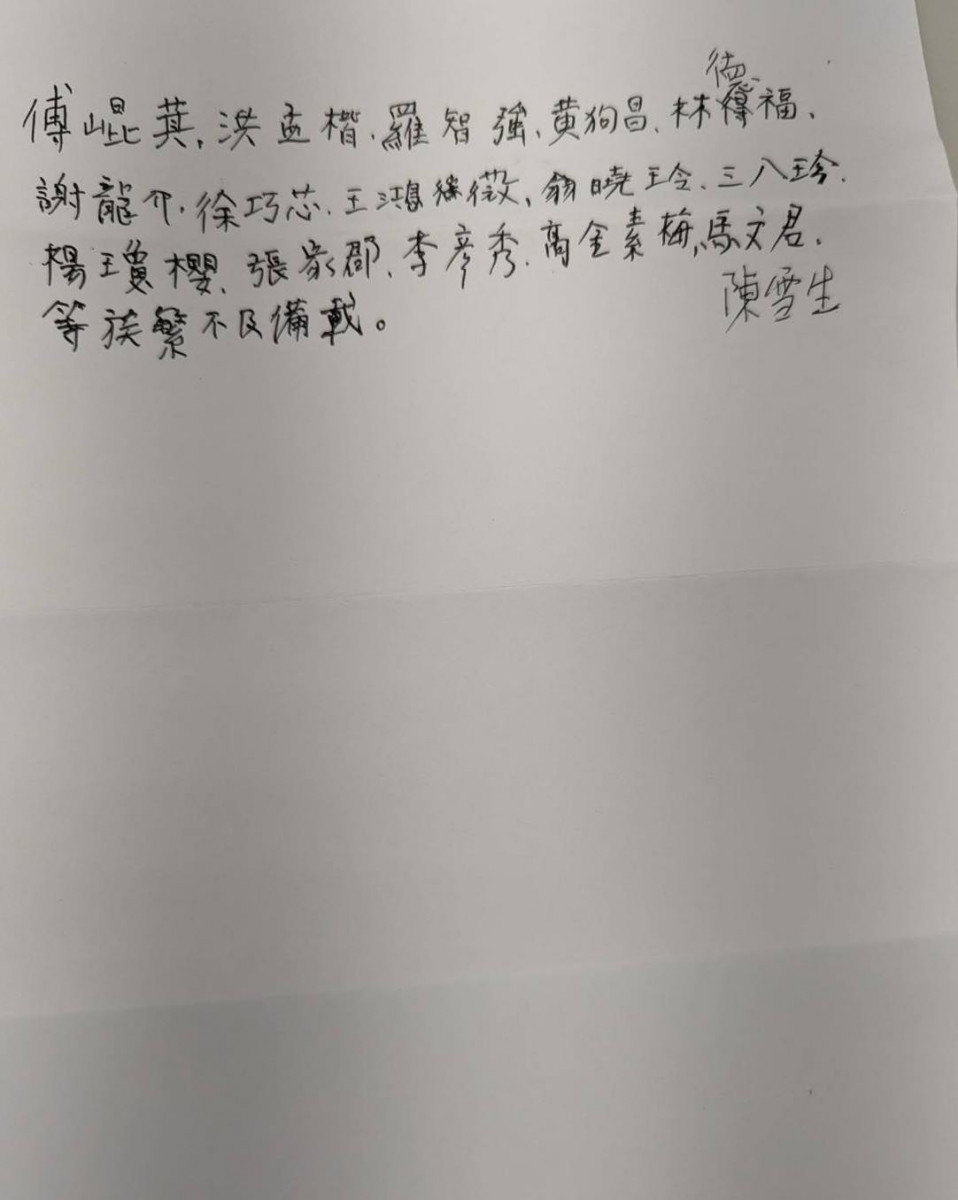 傅崐萁，洪孟楷、羅智強、黃狗昌、林德福、
謝龍介、徐巧芯、王鴻薇、翁曉玲、三八珍、
楊瓊櫻、張家郡、李彥秀、高金素梅、馬文君、
陳雪生
等族繁不及備載。